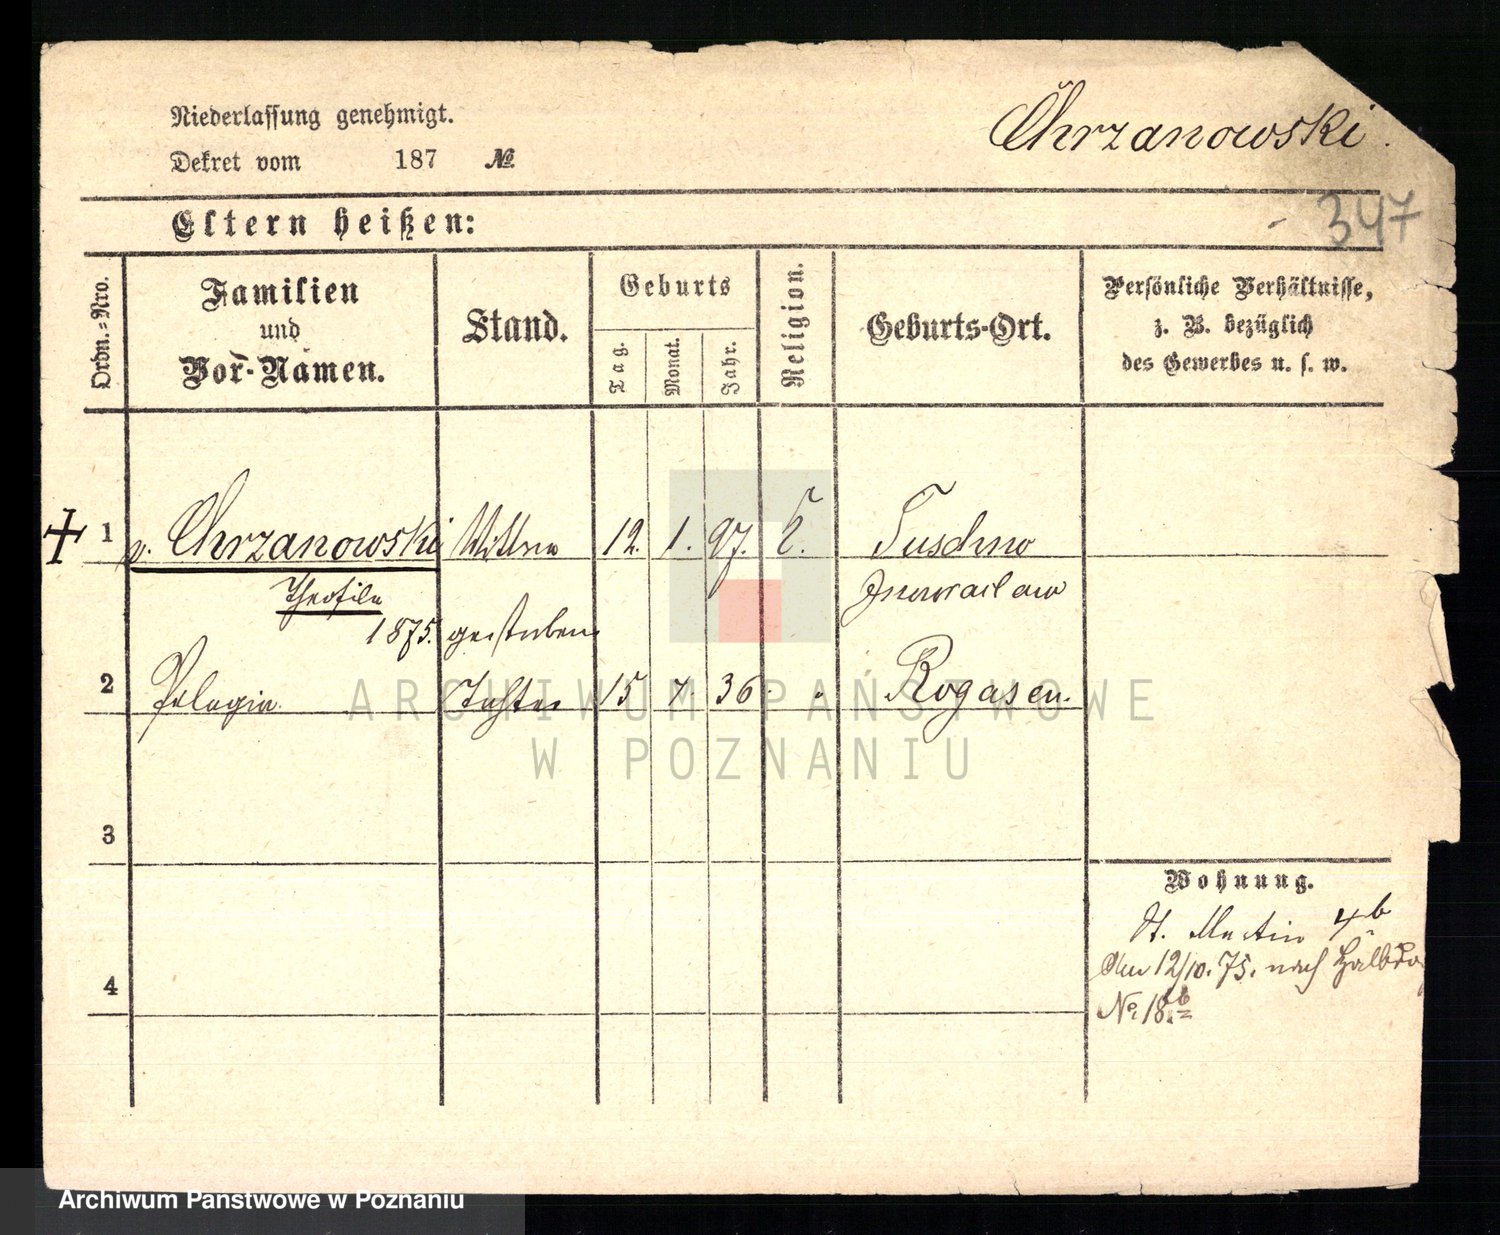 Niederlassung genehmigt.
Chrzanowski.
Dekret vom 187 №
347
Eltern heißen:
Ordn.-Nro.
Familien
und
Vor-Namen.
Stand.
Geburts
Tag.
Monat.
Jahr.
Religion.
Geburts-Ort.
Persönliche Verhältnisse,
z. B. bezüglich
des Gewerbes u. s. w.
1 v. Chrzanowski Wittwe 12. 1. 97. k.
Theofila Inowraclaw
1875. gestorben
2 Pelagia Tochter 15 7. 36. " Rogasen.
3
Wohnung.
St. Martin 4b
Am 12/10. 75. nach
4
№ 18b
ARCHIWUM PAŃSTWOWE
W POZNANIU
Archiwum Państwowe w Poznaniu